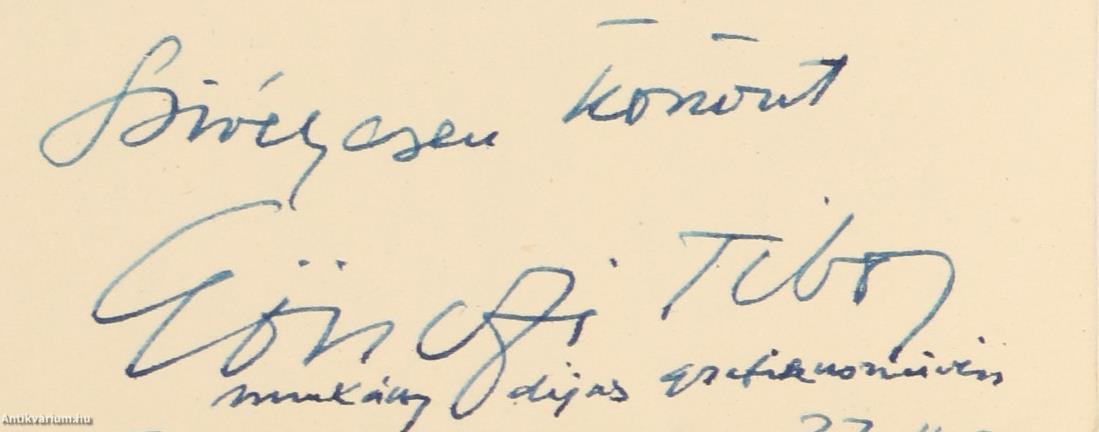 Szivélyesen köszönt
Gönczi Tibor
munkácsy díjas grafikusművész
Antikvárium.hu